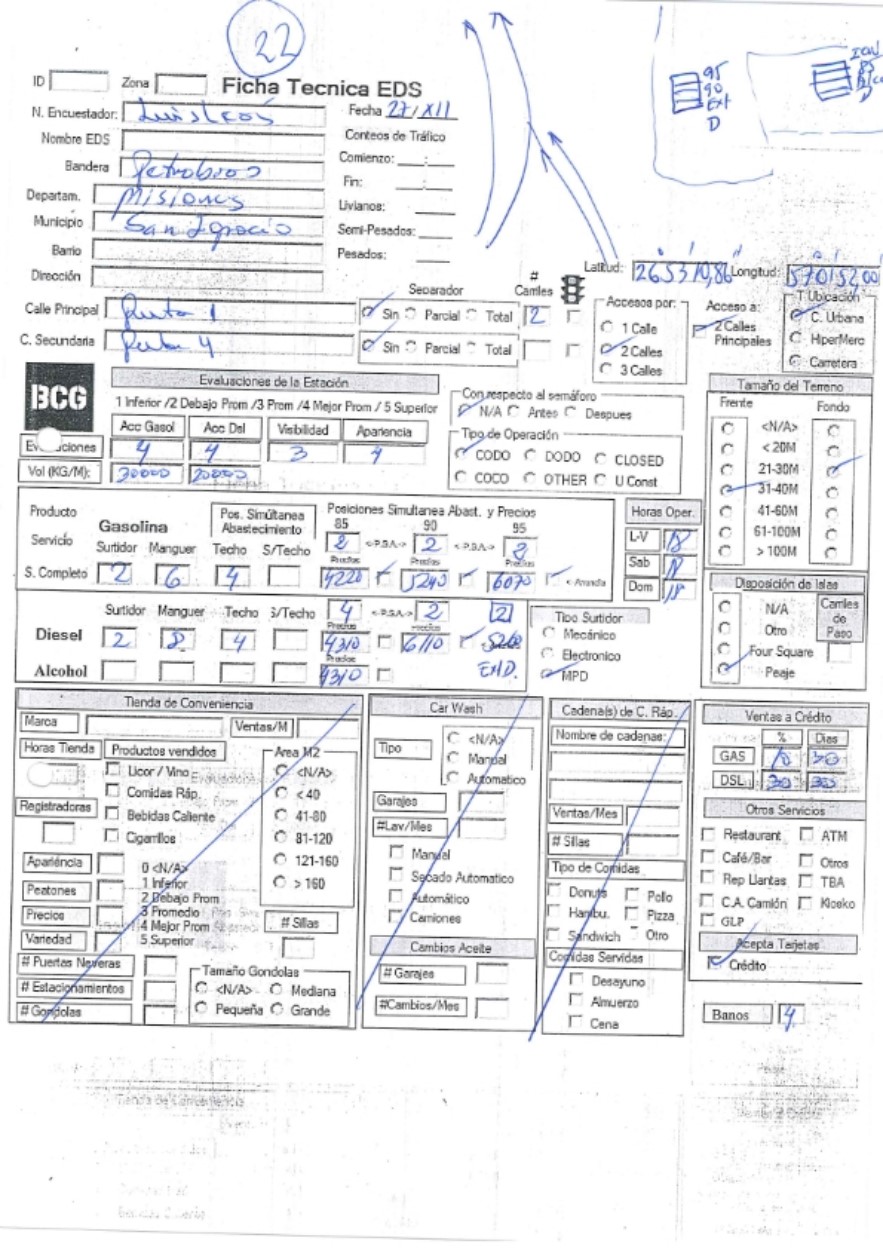 22
95
90
Ext
D
ID Zona Ficha Tecnica EDS
N. Encuestador: Luis Leos Fecha 27/XII
Nombre EDS Conteos de Tráfico
Bandera Petrobras Comienzo: __:__
Departam. Misiones Fin: __:__
Municipio San Ignacio Livianos:
Semi-Pesados:
Barrio Pesados:
Dirección
Latitud: 265310,86 Longitud: 570152,00
Separador # Carriles
Calle Principal Ruta 1 Sin Parcial Total 2
C. Secundaria Ruta 4 Sin Parcial Total
Accesos por:
1 Calle
2 Calles
3 Calles
Acceso a:
2 Calles Principales
T Ubicación
C. Urbana
HiperMerc
Carretera
BCG
Evaluaciones de la Estación
1 Inferior /2 Debajo Prom /3 Prom /4 Mejor Prom / 5 Superior
Acc Gasol Acc Dsl Visibilidad Apariencia
4 4 3 4
Vol (KG/M): 30000 20000
Con respecto al semáforo
N/A Antes Despues
Tipo de Operación
CODO DODO CLOSED
COCO OTHER U Const
Tamaño del Terreno
Frente Fondo
<N/A>
< 20M
21-30M
31-40M
41-60M
61-100M
> 100M
Producto Gasolina
Servicio Surtidor Manguer
Pos. Simúltanea Abastecimiento
Techo S/Techo
Posiciones Simultanea Abast. y Precios
85 90 95
2 <-P.S.A.-> 2 <-P.S.A.-> 2
Precios Precios Precios
S. Completo 2 6 4 4220 5240 6070
Horas Oper.
L-V 18
Sab 18
Dom 18
Surtidor Manguer Techo S/Techo 4 <-P.S.A.-> 2 2
Precios Precios
Diesel 2 8 4 4310 6110
Precios
Alcohol 4310 ExtD.
Tipo Surtidor
Mecánico
Electronico
MPD
Disposición de Islas
N/A
Otro
Four Square
Peaje
Carriles de Paso
Tienda de Conveniencia
Marca Ventas/M
Horas Tienda Productos vendidos
Licor / Vino
Comidas Ráp.
Bebidas Caliente
Cigarrillos
Registradoras
Area M2
<N/A>
< 40
41-80
81-120
121-160
> 160
Apariéncia
Peatones
Precios
Variedad
0 <N/A>
1 Inferior
2 Debajo Prom
3 Promedio
4 Mejor Prom
5 Superior
# Sillas
# Puertas Neveras
# Estacionamientos
# Gondolas
Tamaño Gondolas
<N/A> Mediana
Pequeña Grande
Car Wash
Tipo
<N/A>
Manual
Automatico
Garajes
#Lav/Mes
Manual
Secado Automatico
Automático
Camiones
Cambios Aceite
# Garajes
#Cambios/Mes
Cadena(s) de C. Ráp.
Nombre de cadenas:
Ventas/Mes
# Sillas
Tipo de Comidas
Donuts Pollo
Hambu. Pizza
Sandwich Otro
Comidas Servidas
Desayuno
Almuerzo
Cena
Ventas a Crédito
% Dias
GAS 10 30
DSL 30 30
Otros Servicios
Restaurant ATM
Café/Bar Otros
Rep Llantas TBA
C.A. Camión Kiosko
GLP
Acepta Tarjetas
Crédito
Banos 4